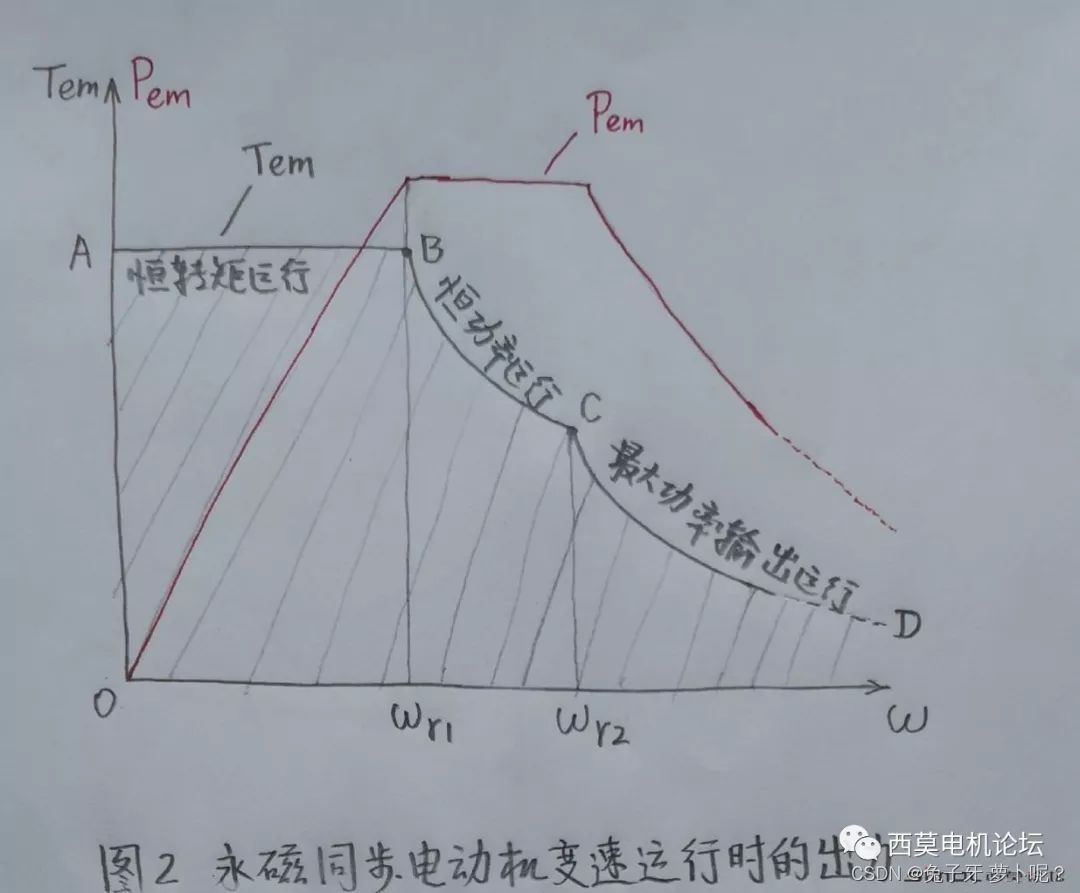 Tem Pem
Pem
Tem
A
B
恒转矩运行
恒功率运行
C
最大功率输出运行
D
O
ωr1
ωr2
ω
图2 永磁同步电动机变速运行时的出
西莫电机论坛
CSDN @兔子牙 萝卜呢?